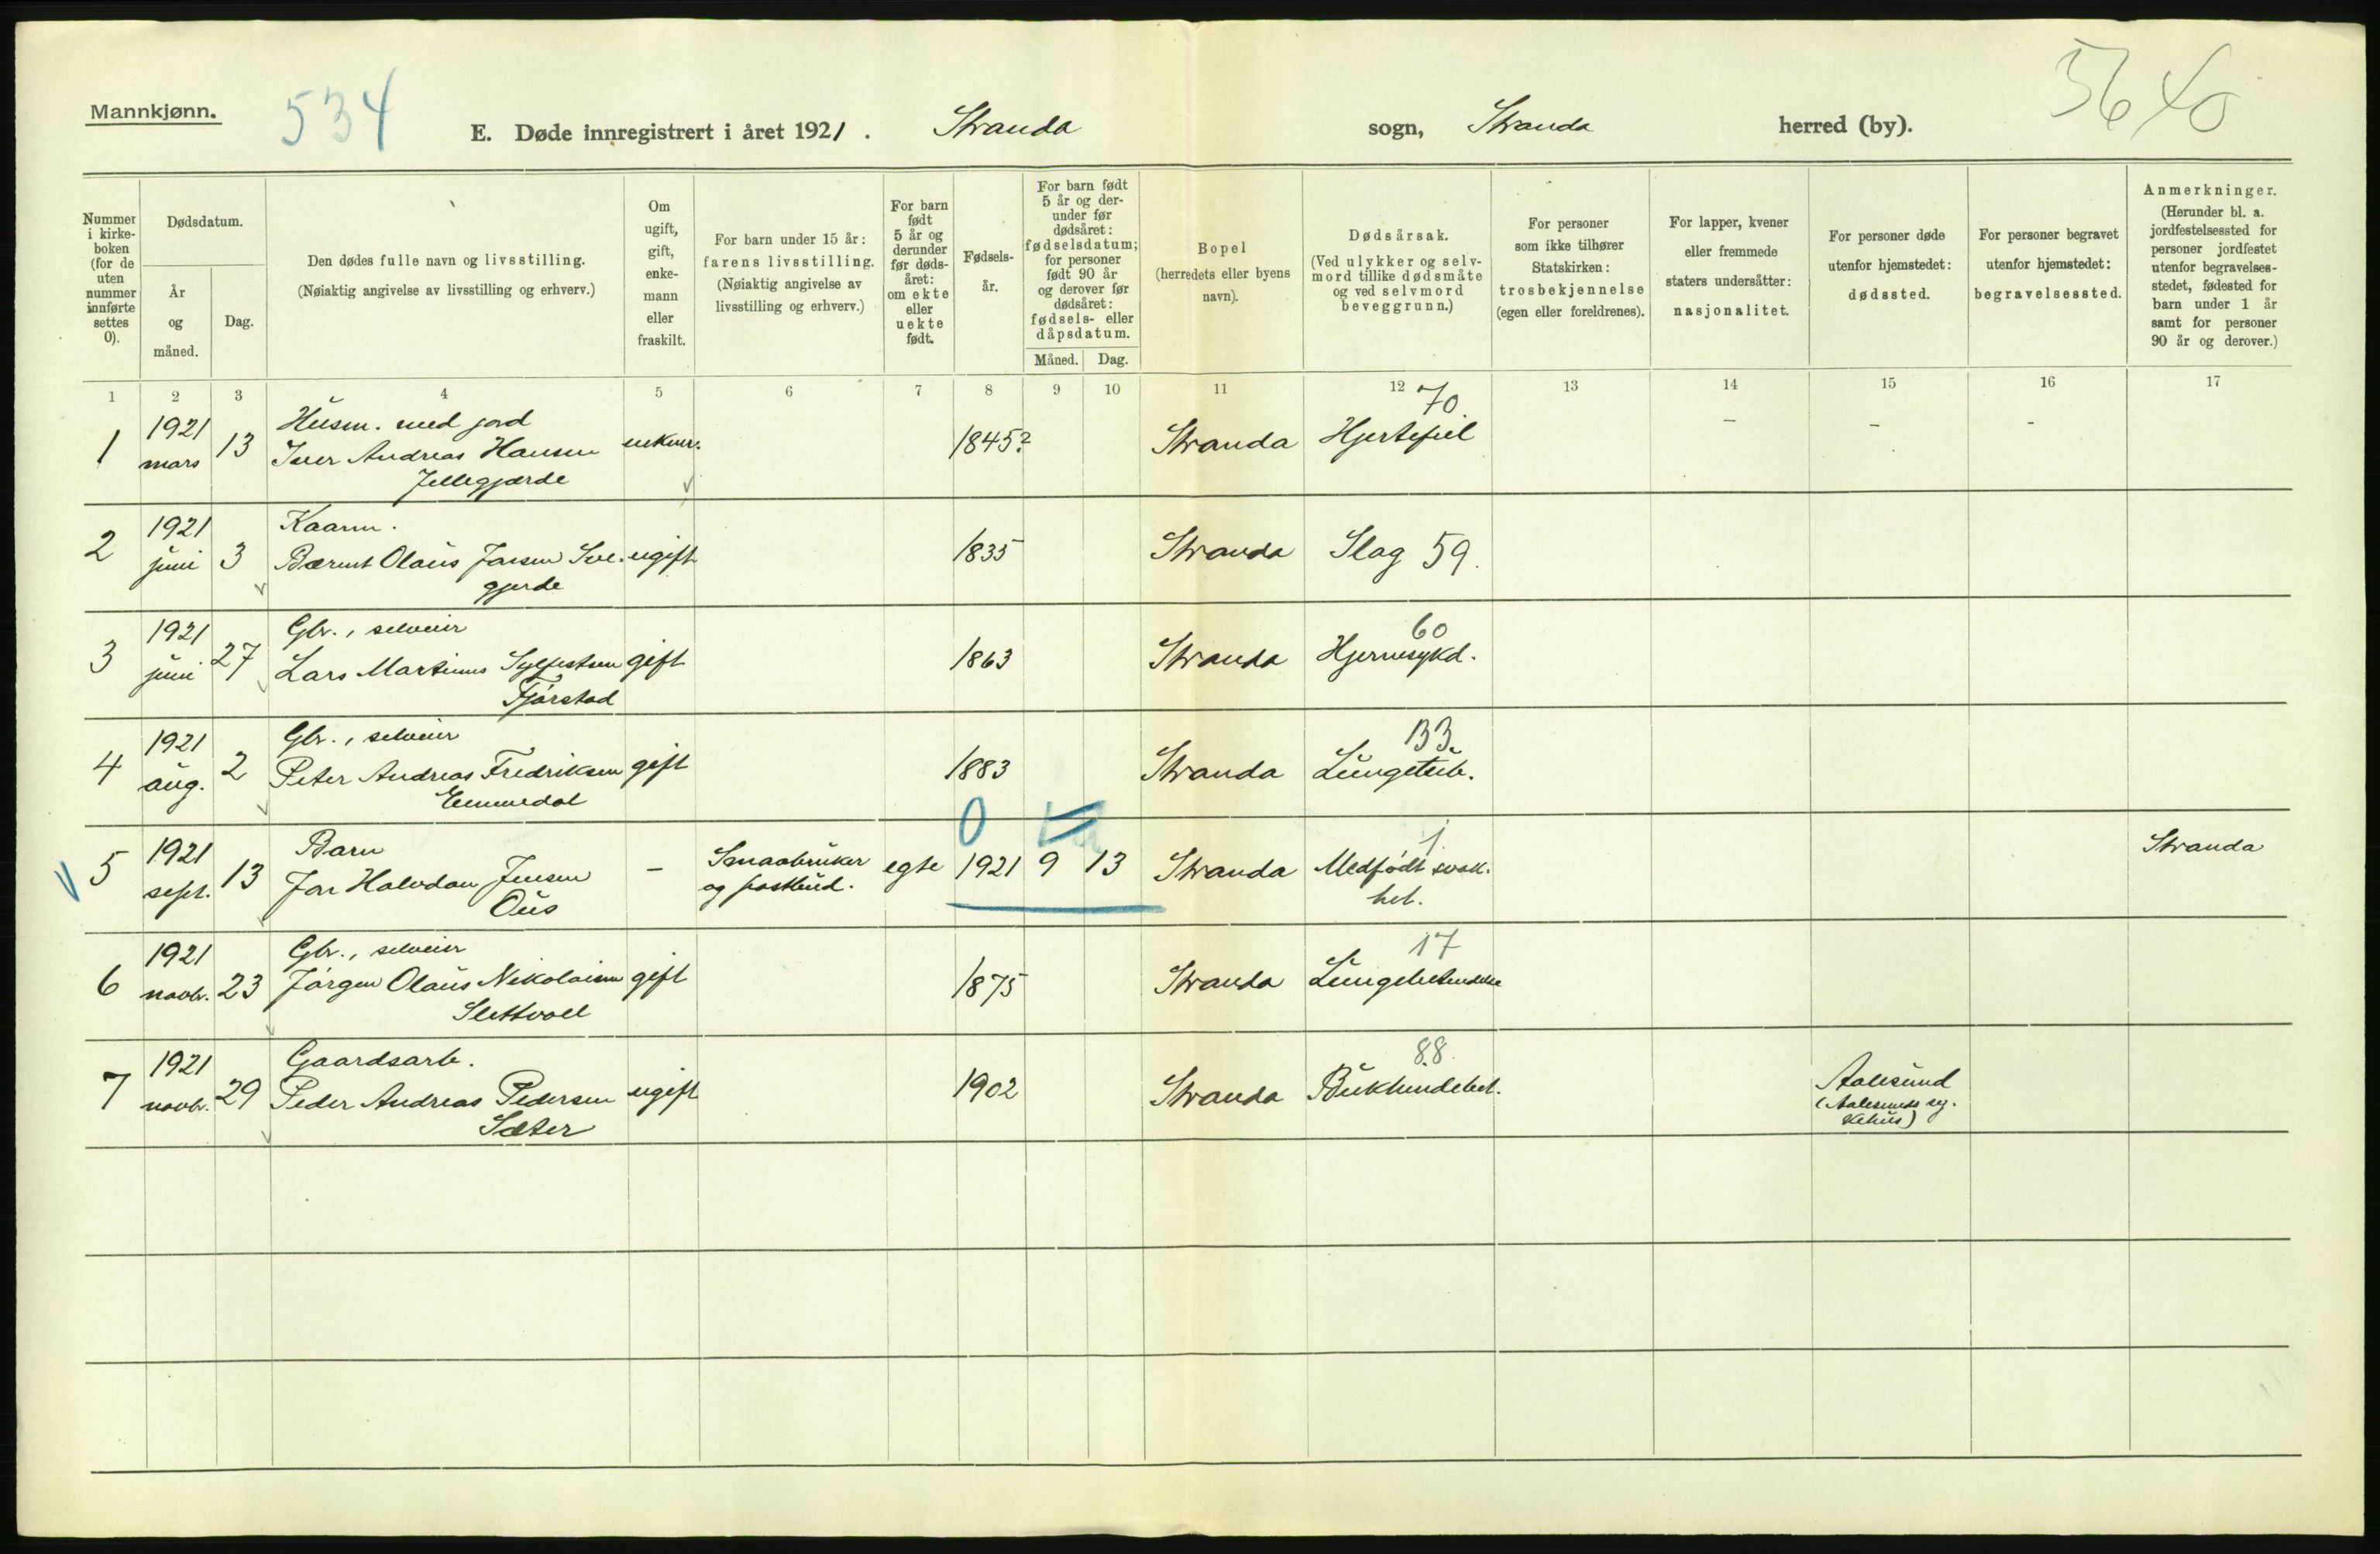 Mannkjønn.
534
E. Døde innregistrert i året 1921. Stranda sogn, Stranda herred (by).
5640
Nummer i kirke-boken (for de uten nummer innførte settes 0).
Dødsdatum.
År og måned.
Dag.
Den dødes fulle navn og livsstilling.
(Nøiaktig angivelse av livsstilling og erhverv.)
Om ugift, gift, enke-mann eller fraskilt.
For barn under 15 år: farens livsstilling.
(Nøiaktig angivelse av livsstilling og erhverv.)
For barn født 5 år og derunder før døds-året: om ekte eller uekte født.
Fødsels-år.
For barn født 5 år og der-under før dødsåret: fødselsdatum; for personer født 90 år og derover før dødsåret: fødsels- eller dåpsdatum.
Måned. Dag.
Bopel
(herredets eller byens navn).
Dødsårsak.
(Ved ulykker og selv-mord tillike dødsmåte og ved selvmord beveggrunn.)
For personer som ikke tilhører Statskirken: trosbekjennelse (egen eller foreldrenes).
For lapper, kvener eller fremmede staters undersåtter: nasjonalitet.
For personer døde utenfor hjemstedet: dødssted.
For personer begravet utenfor hjemstedet: begravelsessted.
Anmerkninger.
(Herunder bl. a. jordfestelsessted for personer jordfestet utenfor begravelses-stedet, fødested for barn under 1 år samt for personer 90 år og derover.)
1 2 3 4 5 6 7 8 9 10 11 12 13 14 15 16 17
Husm. med jord 70
1 1921 mars 13 Iver Andreas Hansen 1845? Stranda Hjertefeil - - -
Kaarm.
2 1921 juni 3 Bærnt Olaus Jansen Sve- ugift 1835 Stranda Slag 59.
gjerde
Gbr., selveier 60
3 1921 juni 27 Lars Martinus Sylfestsen gift 1863 Stranda Hjernesykd.
Fjørstad
Gbr., selveier 133.
4 1921 aug. 2 Peter Andreas Fredriksen gift 1883 Stranda Lungetub.
Emmedal
0
Barn 1.
5 1921 sept. 13 Jar Halvdan Jensen - Smaabruker og postbud. egte 1921 9 13 Stranda Medfødt svak-het. Stranda
Ous
Gbr., selveier 17
6 1921 novbr. 23 Jørgen Olaus Nikolaisen gift 1875 Stranda Lungebetendelse
Slettvoll
Gaardsarb. 88
7 1921 novbr. 29 Peder Andreas Pedersen ugift 1902 Stranda Bukhindebet. Aalesund
Sæter (Aalesunds sy-kehus)